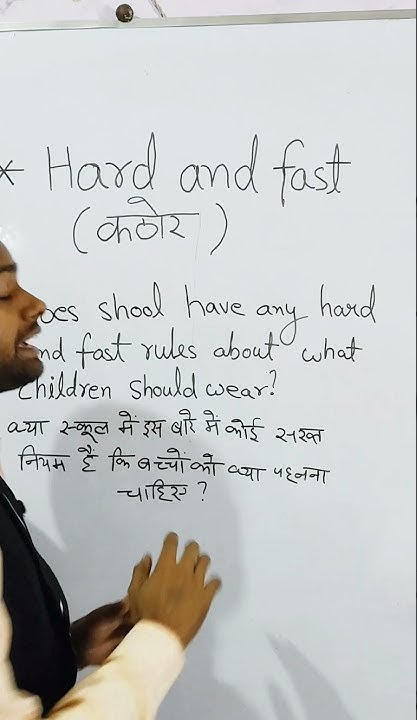 * Hard and fast
(कठोर)
oes shool have any hard
nd fast rules about what
children should wear?
क्या स्कूल में इस बारे में कोई सख्त
नियम हैं कि बच्चों को क्या पहनना
चाहिए ?